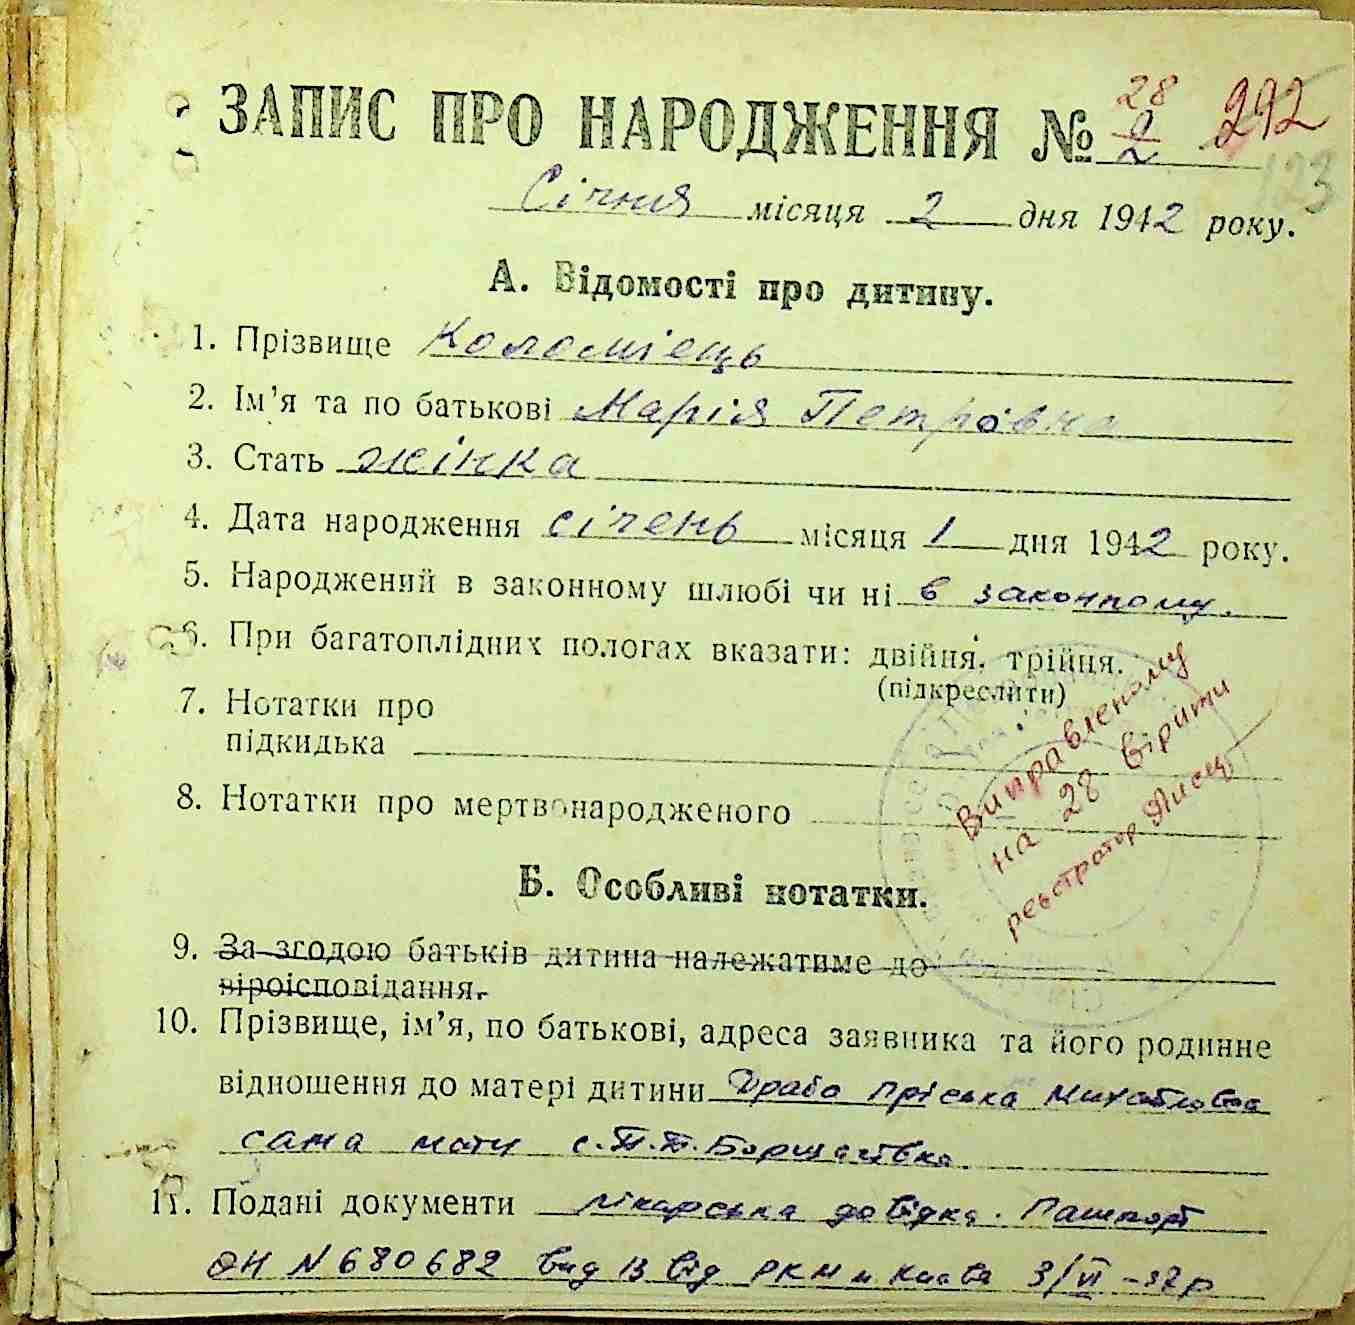 ЗАПИС ПРО НАРОДЖЕННЯ № 28 2 292
123
Січня місяця 2 дня 1942 року.
А. Відомості про дитину.
1. Прізвище Коломієць
2. Ім'я та по батькові Марія Петрівна
3. Стать жінка
4. Дата народження січень місяця 1 дня 1942 року.
5. Народжений в законному шлюбі чи ні в законному.
6. При багатоплідних пологах вказати: двійня, трійця.
(підкреслити)
7. Нотатки про
підкидька
8. Нотатки про мертвонародженого
Виправленому
на 28 вірити
реєстратор
Б. Особливі нотатки.
9. За згодою батьків дитина належатиме до
віроісповідання.
10. Прізвище, ім'я, по батькові, адреса заявника та його родинне
відношення до матері дитини Драбо Пріська Михайловна
сама мати с. П. П. Борщагівка
11. Подані документи лікарська довідка. Пашпорт
ОН N 680682 вид 13 від РКМ м Києва 3/VI -37 р